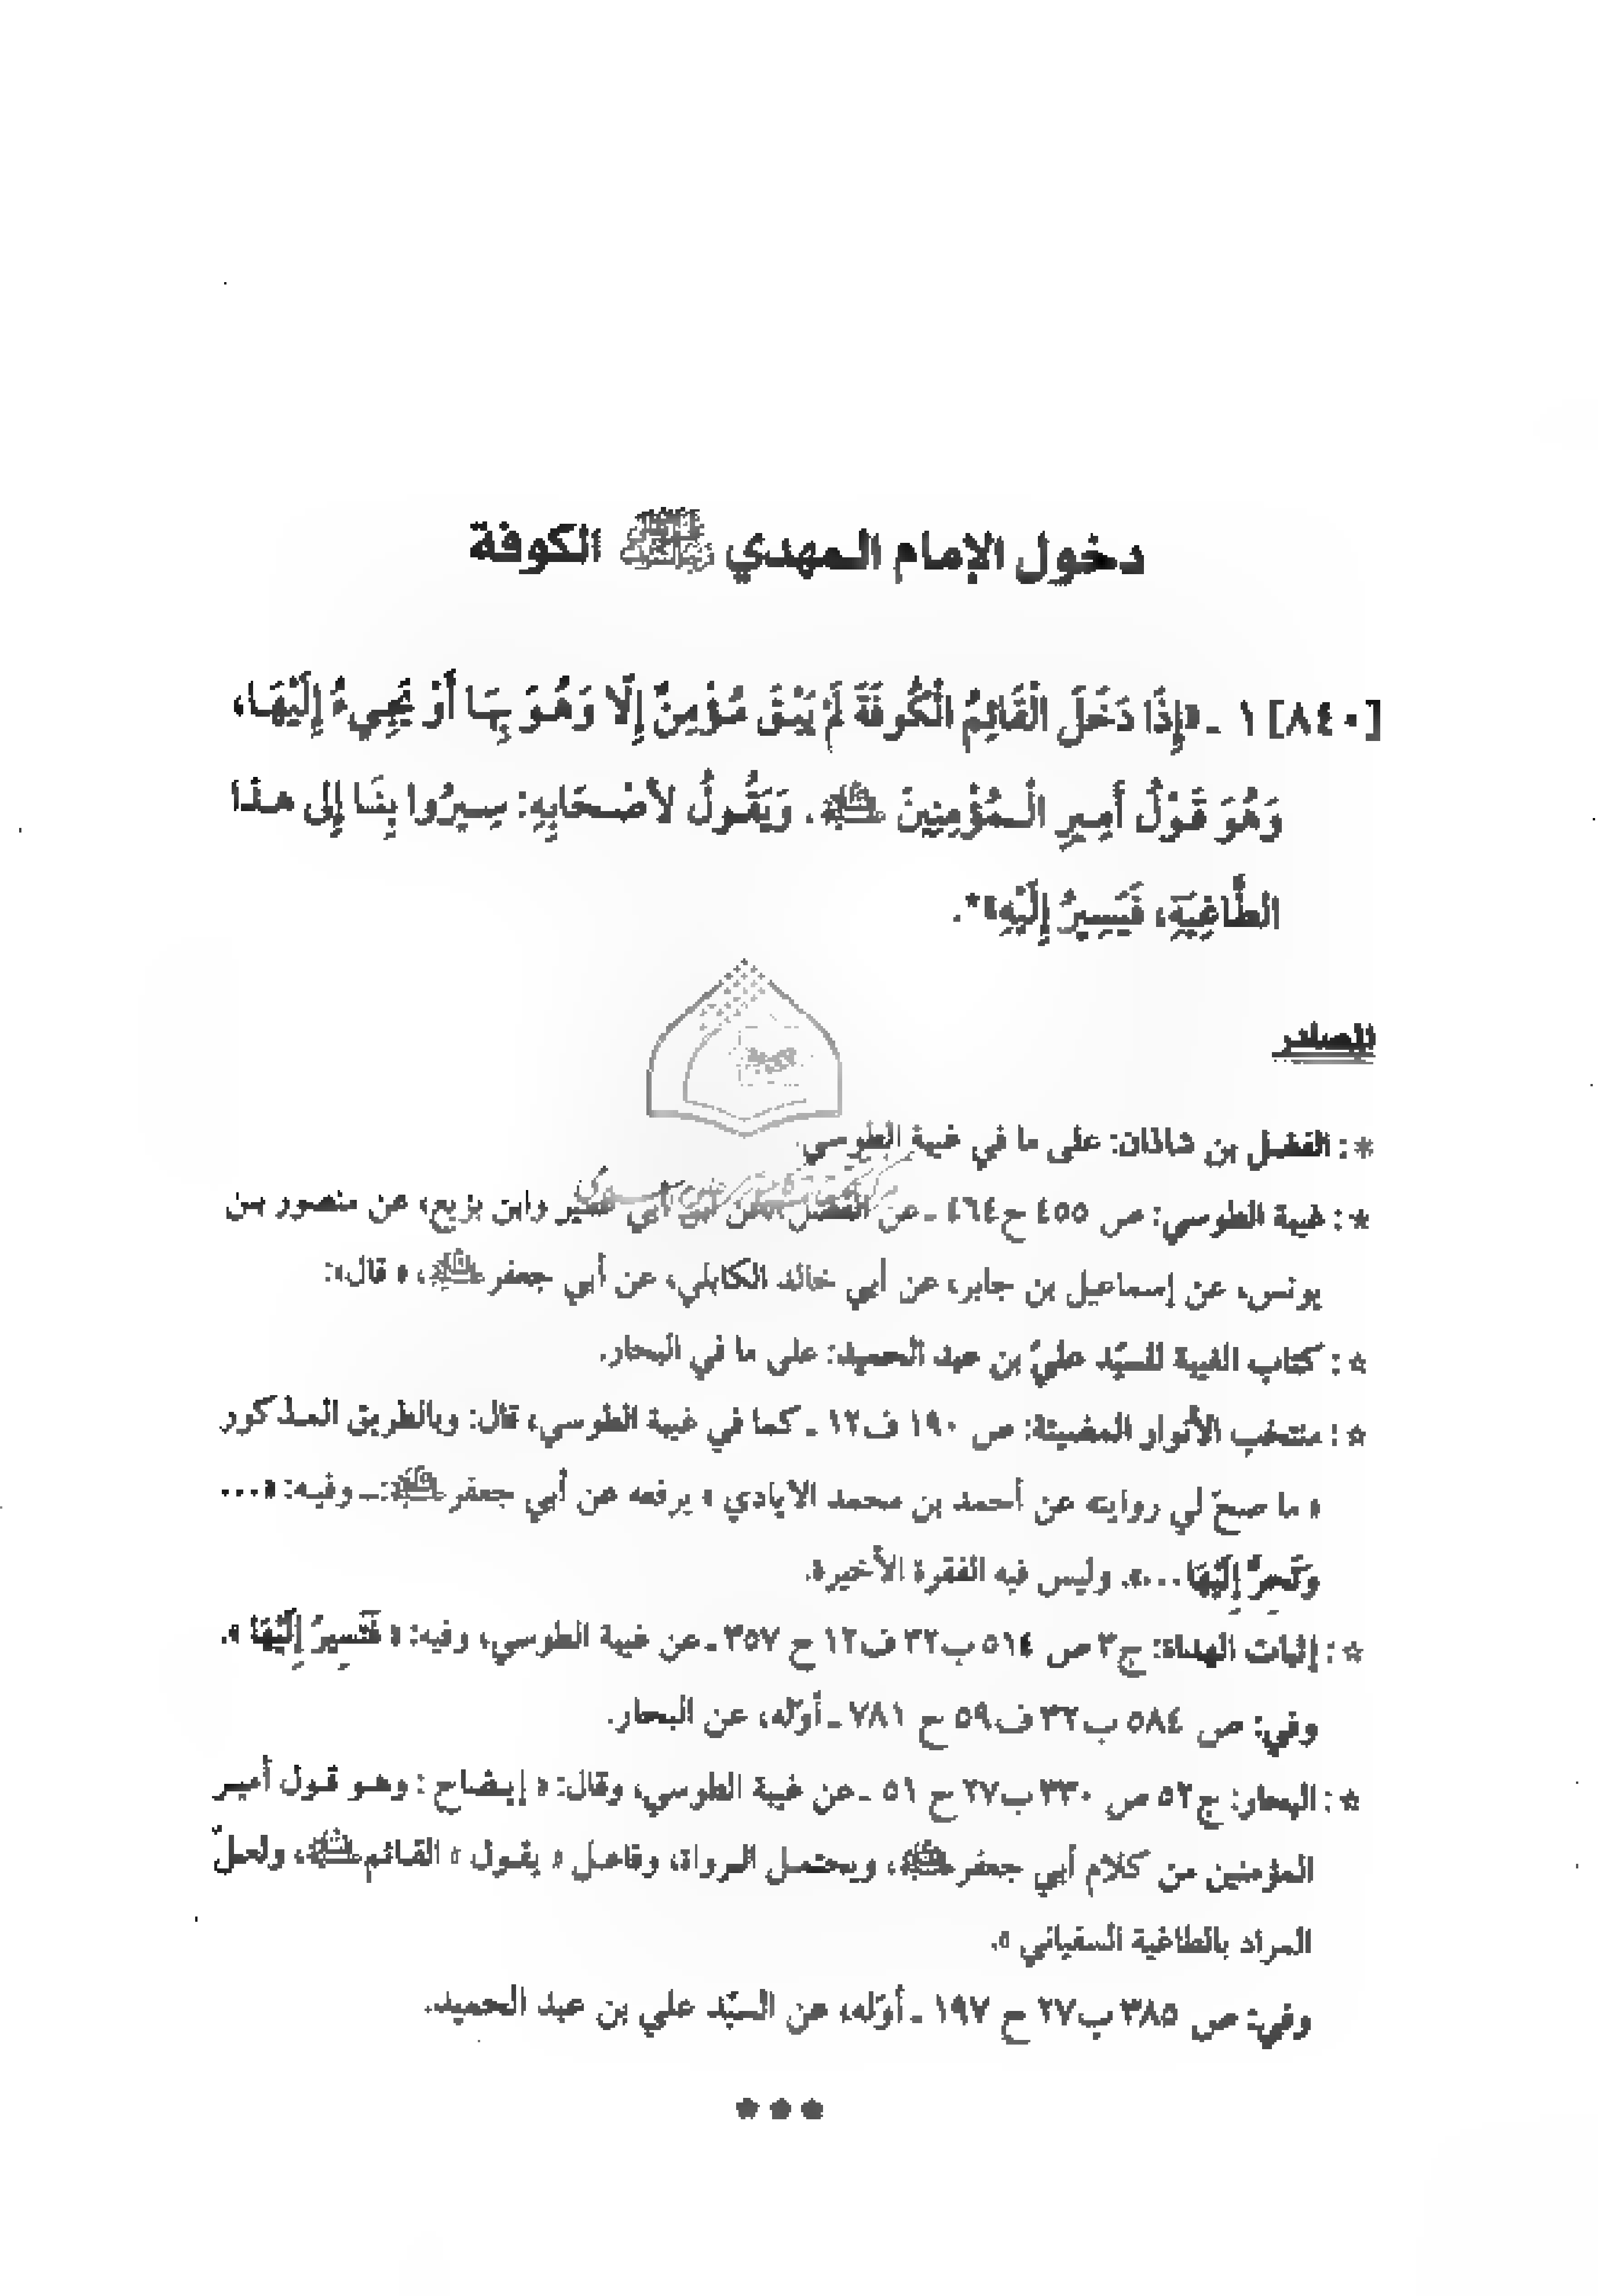 دخول الإمام المهدي الكوفة
[٨٤٠] ١ ـ «إِذَا دَخَلَ الْقَائِمُ الْكُوفَةَ لَمْ يَبْقَ مُؤْمِنٌ إِلَّا وَهُوَ بِهَا أَوْ يَجِيءُ إِلَيْهَا،
وَهُوَ قَوْلُ أَمِيرِ الْمُؤْمِنِينَ. وَيَقُولُ لأَصْحَابِهِ: سِيرُوا بِنَا إِلى هذا
الطَّاغِيَةِ، فَيَسِيرُ إِلَيْهِ»*.
المصادر
* : الفضل بن شاذان: على ما في غيبة الطوسي.
* : غيبة الطوسي: ص ٤٥٥ ح٤٦٤ ـ عن الفضل، عن ابن أبي عمير وابن بزيع، عن منصور بن
يونس، عن إسماعيل بن جابر، عن أبي خالد الكابلي، عن أبي جعفر، « قال»:
* : كتاب الغيبة للسيّد عليّ بن عبد الحميد: على ما في البحار.
* : منتخب الأنوار المضيئة: ص ١٩٠ ف١٢ ـ كما في غيبة الطوسي، قال: وبالطريق المذكور
« ما صحّ لي روايته عن أحمد بن محمد الايادي » يرفعه عن أبي جعفر: ـ وفيه: «...
إِلَيْهَا...». وليس فيه الفقرة الأخيرة.
* : إثبات الهداة: ج٣ ص ٥١٤ ب٣٢ ف١٢ ح ٣٥٧ ـ عن غيبة الطوسي، وفيه: « فَتَسِيرُ إِلَيْهَا ».
وفي: ص ٥٨٤ ب٣٢ ف٥٩ ح ٧٨١ ـ أوّله، عن البحار.
* : البحار: ج٥٢ ص ٣٣٠ ب٢٧ ح ٥١ ـ عن غيبة الطوسي، وقال: « إيضاح : وهو قول أمير
المؤمنين من كلام أبي جعفر، ويحتمل الرواة، وفاعل « يقول » القائم، ولعلّ
المراد بالطاغية السفياني ».
وفي: ص ٣٨٥ ب٢٧ ح ١٩٧ ـ أوّله، عن السيّد علي بن عبد الحميد.
***